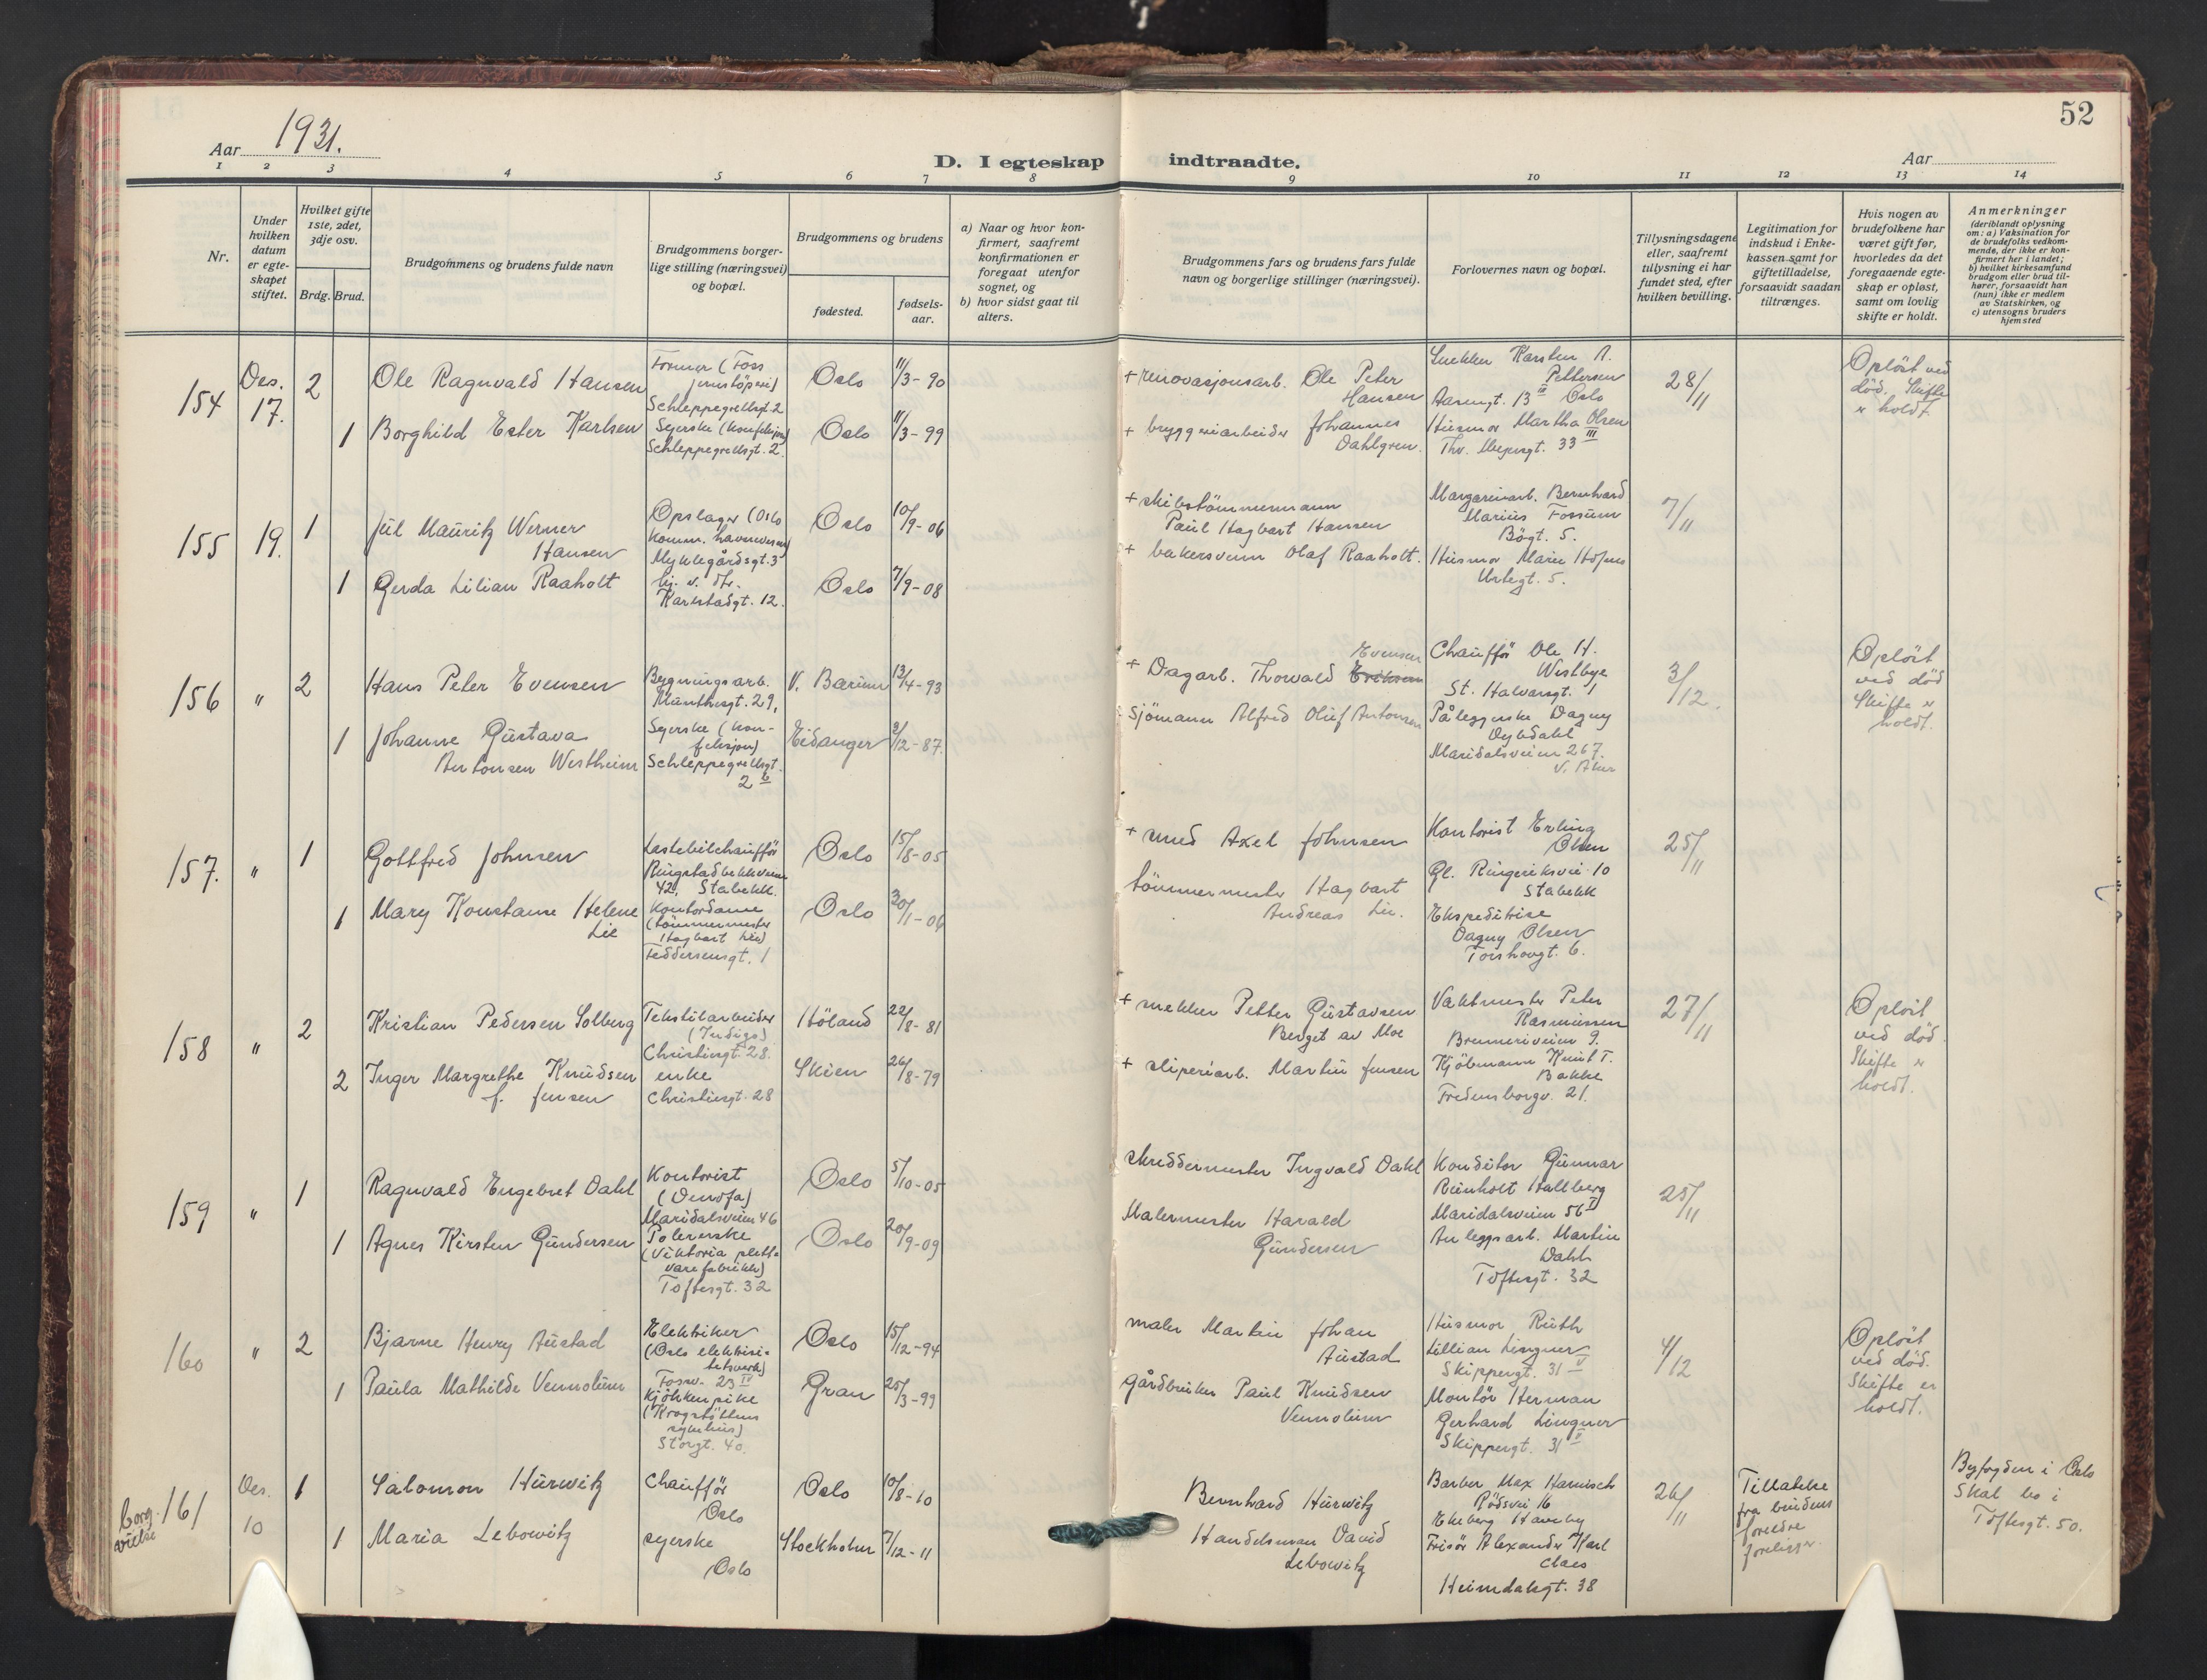 52
Aar 1931.
D. I egteskap indtraadte.
Aar
1 2 3 4 5 6 7 8 9 10 11 12 13 14
Nr.
Under
hvilken
datum
er egte-
skapet
stiftet.
Hvilket gifte
1ste, 2det,
3dje osv.
Brdg. Brud.
Brudgommens og brudens fulde navn
Brudgommens borger-
lige stilling (næringsvei)
og bopæl.
Brudgommens og brudens
fødested.
fødsels-
aar.
a) Naar og hvor kon-
firmert, saafremt
konfirmationen er
foregaat utenfor
sognet, og
b) hvor sidst gaat til
alters.
Brudgommens fars og brudens fars fulde
navn og borgerlige stillinger (næringsvei).
Forlovernes navn og bopæl.
Tillysningsdagene
eller, saafremt
tillysning ei har
fundet sted, efter
hvilken bevilling.
Legitimation for
indskud i Enke-
kassen samt for
giftetilladelse,
forsaavidt saadan
tiltrænges.
Hvis nogen av
brudefolkene har
været gift før,
hvorledes da det
foregaaende egte-
skap er opløst,
samt om lovlig
skifte er holdt.
Anmerkninger
(deriblandt oplysning
om: a) Vaksination for
de brudefolks vedkom-
mende, der ikke er kon-
firmert her i landet;
b) hvilket kirkesamfund
brudgom eller brud til-
hører, forsaavidt han
(hun) ikke er medlem
av Statskirken, og
c) utensogns bruders
hjemsted
154
Des.
17.
2
Ole Ragnvald Hansen
Former (Foss
jernstöperi)
Schleppegrellsgt. 2
Oslo
11/3-90
+ renovasjonsarb. Ole Peter
Hansen
Snekker Karsten A.
Pettersen
13 III Oslo
28/11
Oplöst ved
död. Skifte
er holdt.
1
Borghild Ester Karlsen
Syerske (konfeksjon)
Schleppegrellsgt. 2.
Oslo
11/3-99
+ bryggeriarbeider Johannes
Dahlgren.
Husmor Martha Olsen
Thv. Meyersgt. 33 III
155
19.
1
Jul Mauritz Werner
Hansen
Opslager (Oslo
komm. havnevesen)
Myklegårdsgt. 3
Oslo
10/9-06
+ skibstömmermann
Paul Hagbart Hansen
Margarinarb. Bernhard
Marius Fossum
Bögt. 5.
7/11
1
Gerda Lilian Raaholt
hj. v. dr.
Karlstadgt. 12.
Oslo
7/9-08
+ bakersvenn Olaf Raaholt.
Husmor Marie
Urtegt. 5.
156
"
2
Hans Peter Evensen
Bygningsarb.
Munthesgt. 29,
V. Bærum
13/4-93
Evensen
+ Dagarb. Thorvald
Chaufför Ole H.
Westbye
St. Halvarsgt. 1
3/12.
Oplöst
ved död
Skifte er
holdt.
1
Johanne Gustava
Antonsen Westheim
Syerske (kon-
feksjon)
Schleppegrellsgt.
2 b
Eidanger
2/12-87.
Sjömann Alfred Oluf Antonsen
Påleggerske Dagny
Dybdahl
Maridalsveien 267.
V. Aker
157.
"
1
Gottfred Johnsen
Lastebilchaufför
Ringstadbekkveien
42, Stabekk.
Oslo
15/8-05
+ smed Axel Johnsen
Kontorist Erling
Olsen
Gl. Ringeriksvei 10
Stabekk
25/11
1
Mary Konstanse Helene
Lie
Kontordame
(tömmermester
Hagbart Lie)
Feddersensgt. 1
Oslo
30/1-06
tömmermester Hagbart
Andreas Lie.
Ekspeditrise
Dagny Olsen
Torshovgt. 6.
158
"
2
Kristian Pedersen Solberg
Tekstilarbeider
(Indigo)
Christiesgt. 28.
Höland
22/8-81
+ snekker Petter Gustavsen
Berget av Moe
Vaktmester Peter
Rasmussen
Brenneriveien 9.
27/11
Oplöst
ved död.
Skifte er
holdt.
2
Inger Margrethe Knudsen
f. Jensen
enke
Christiesgt. 28
Skien
26/8-79
+ sliperiarb. Martin Jensen
Kjöbmann Knut T.
Bakke
Fredensborgv. 21.
159
"
1
Ragnvald Engebret Dahl
Kontorist
(Denofa)
Maridalsveien 46
Oslo
5/10-05
skreddermester Ingvald Dahl
Konditor Gunnar
Reinholt Hallberg
Maridalsveien 56 I
25/11
1
Agnes Kirsten Gundersen
Polererske
(Viktoria plett-
varefabrikk)
Toftesgt. 32
Oslo
20/9-09
Malermester Harald
Gundersen
Anleggsarb. Martin
Dahl
Toftesgt. 32
160
"
2
Bjarne Henry Austad
Elektriker
(Oslo elektrisi-
tetsverk)
Fossv. 23 IV
Oslo
15/12-94
maler Martin Johan
Austad
Husmor Ruth
Lillian Lingner
Skippergt. 31 V
4/12
Oplöst
ved död.
Skifte er
holdt.
1
Paula Mathilde Vennolum
Kjökkenpike
(Krogstöttens
sykehus)
Storgt. 40.
Gran
25/3-99
gårdbruker Paul Knudsen
Vennolum
Montör Herman
Gerhard Lingner
Skippergt. 31 V
borg.
vielse
161
Des.
10
1
Salomon Hurwitz
Chaufför
Oslo
Oslo
10/8-10
Bernhard Hurwitz
Barber Max Harnisch
Rödsvei 16
Ekeberg Haveby
26/11
Tillatelse
fra brudens
foreldre
foreligger.
Byfogden i Oslo
Skal bo i
Toftesgt. 50.
1
Maria Lebowitz
syerske
Oslo
Stockholm
7/12-11
Handelsmann David
Lebowitz
Frisör Alexander Karl
Claes
Heimdalsgt. 38